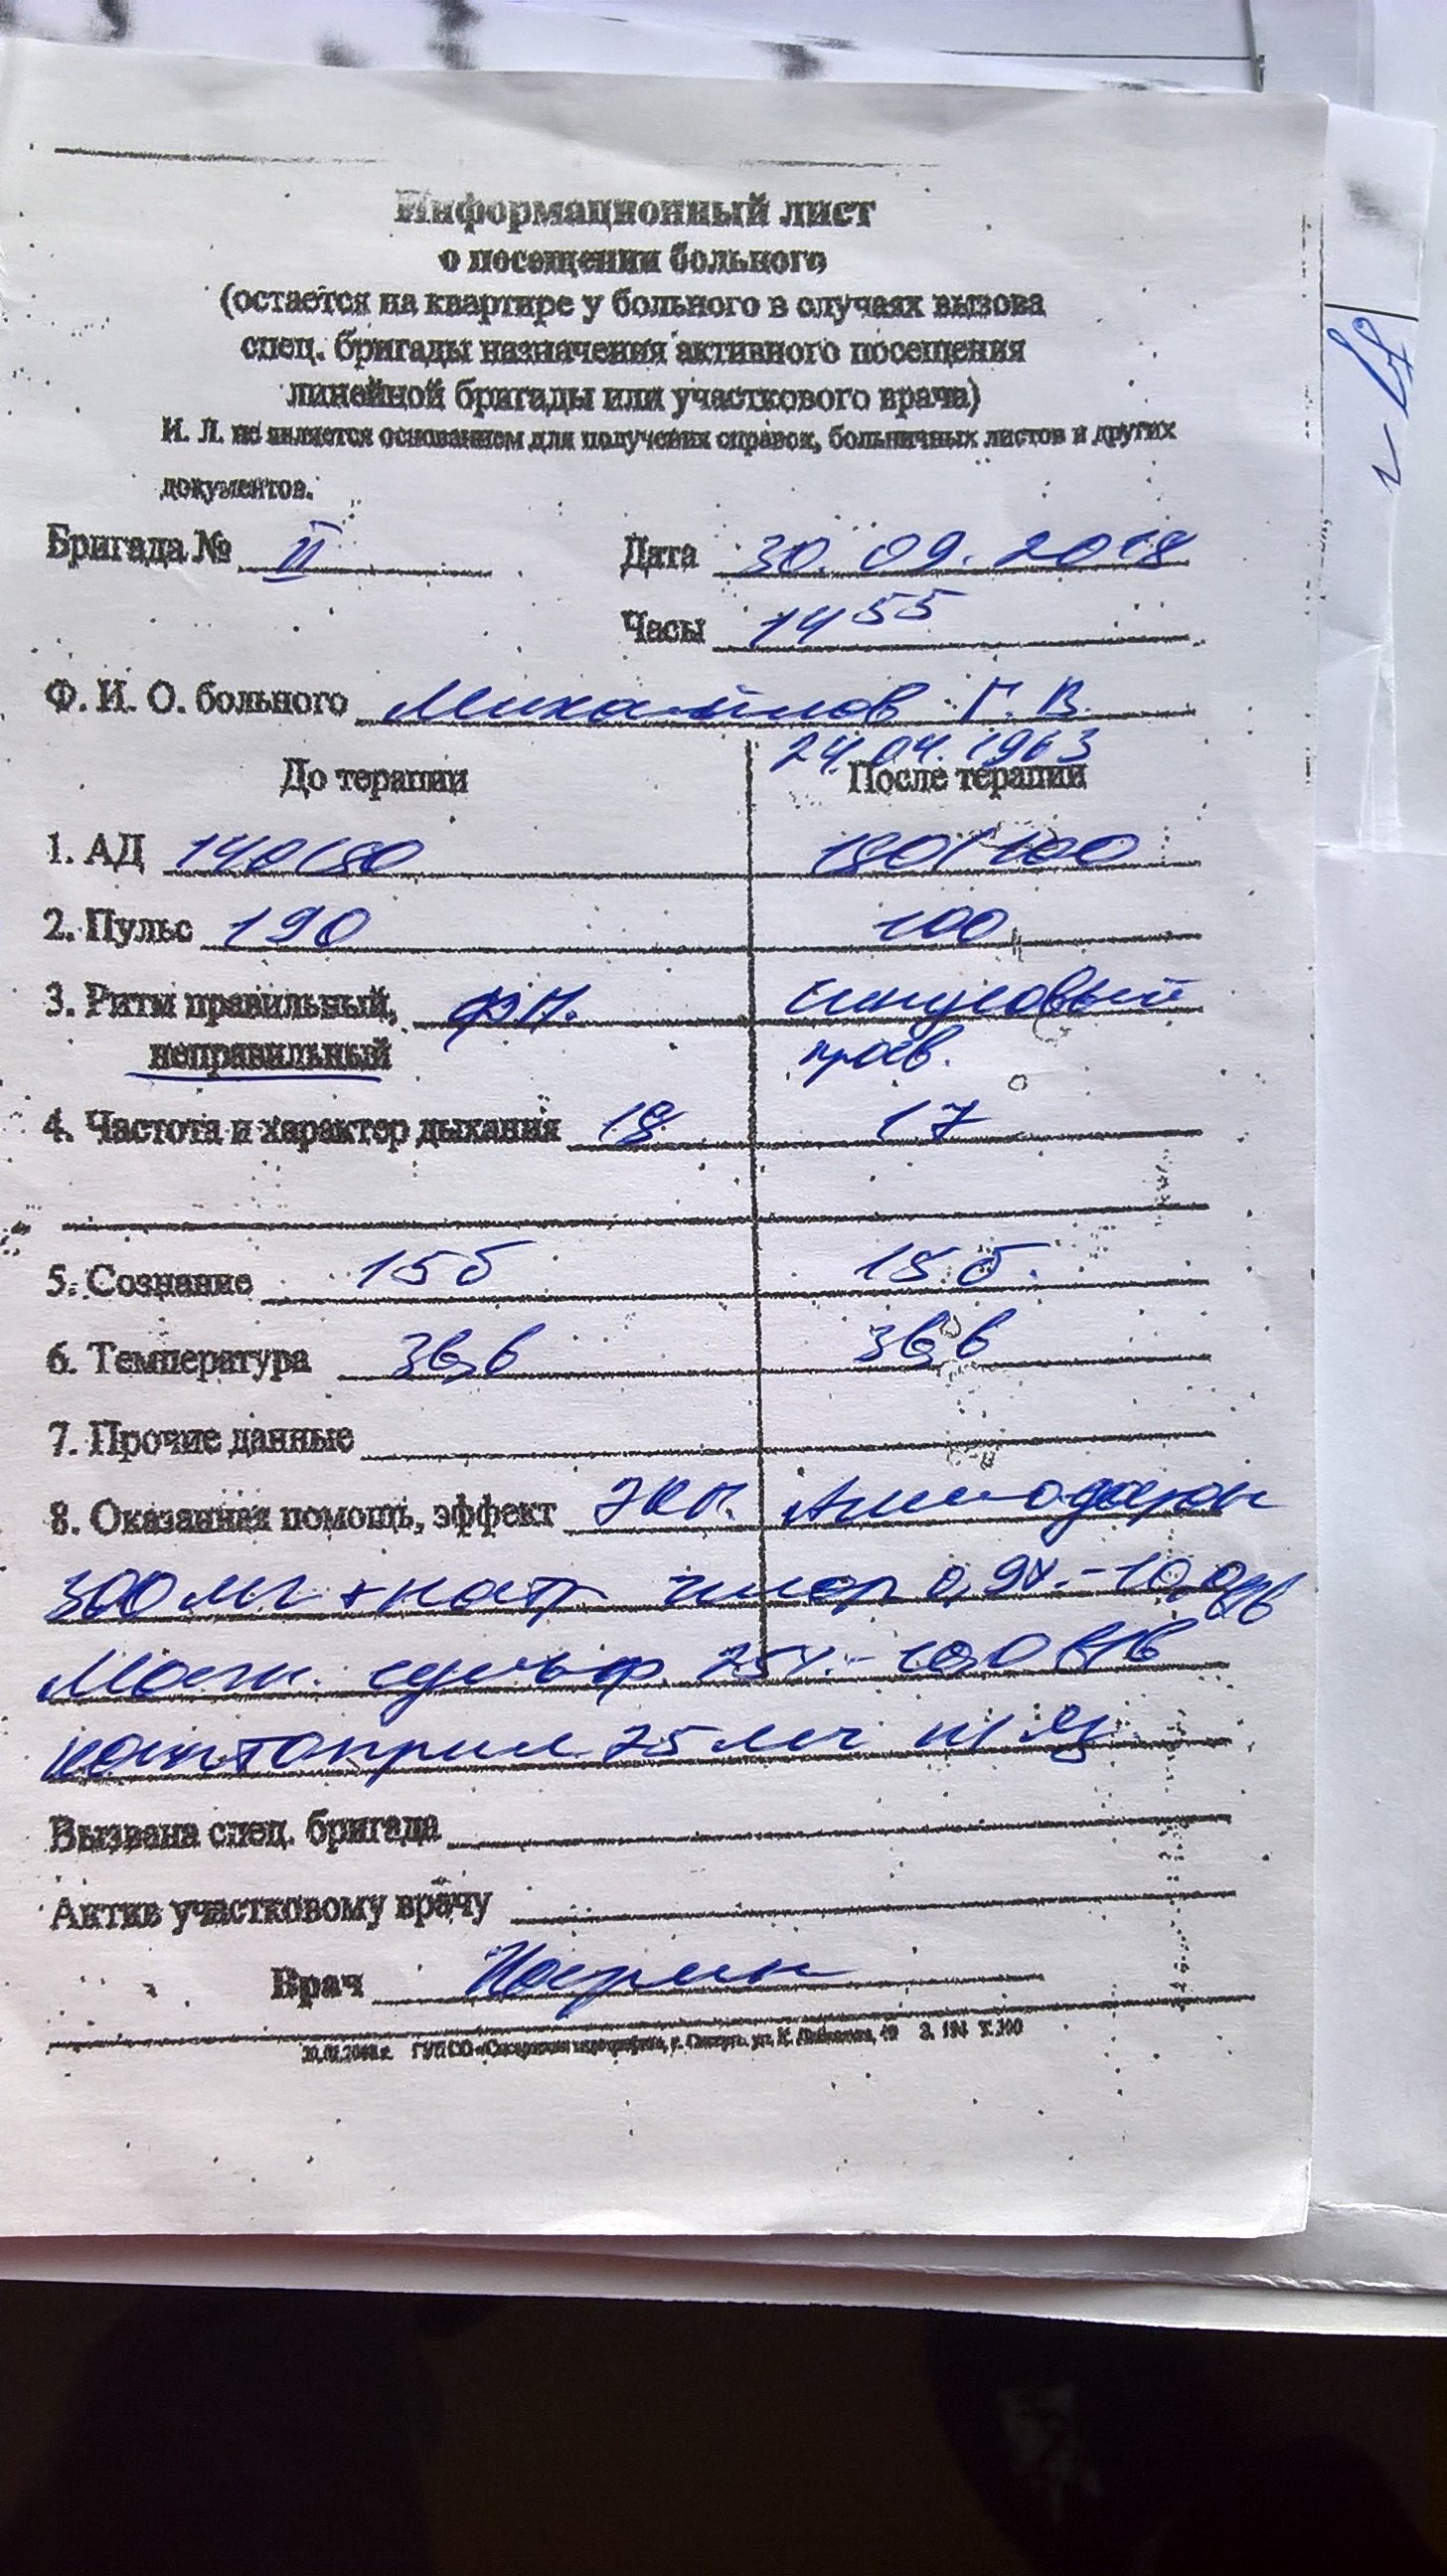 Информационный лист
о посещении больного
(остается на квартире у больного в случаях вызова
спец. бригады назначения активного посещения
линейной бригады или участкового врача)
И. Л. не является основанием для получения справок, больничных листов и других
документов.
Бригада № II Дата 30.09.2018
Часы 14 55
Ф. И. О. больного Михайлов Г. В.
24.04.1963
До терапии После терапии
1. АД 140/80 180/100
2. Пульс 190 100
3. Ритм правильный, ФП. синусовый
неправильный прав.
4. Частота и характер дыхания 18 17
5. Сознание 15б 15б.
6. Температура 36,6 36,6
7. Прочие данные
8. Оказанная помощь, эффект ЭКГ. Амиодарон
300 мг + натр хлор 0,9%.-10,0 в/в
Магн. сульф. 25%.-10,0 в/в
каптоприл 25 мг п/яз
Вызвана спец. бригада
Актив участковому врачу
Врач